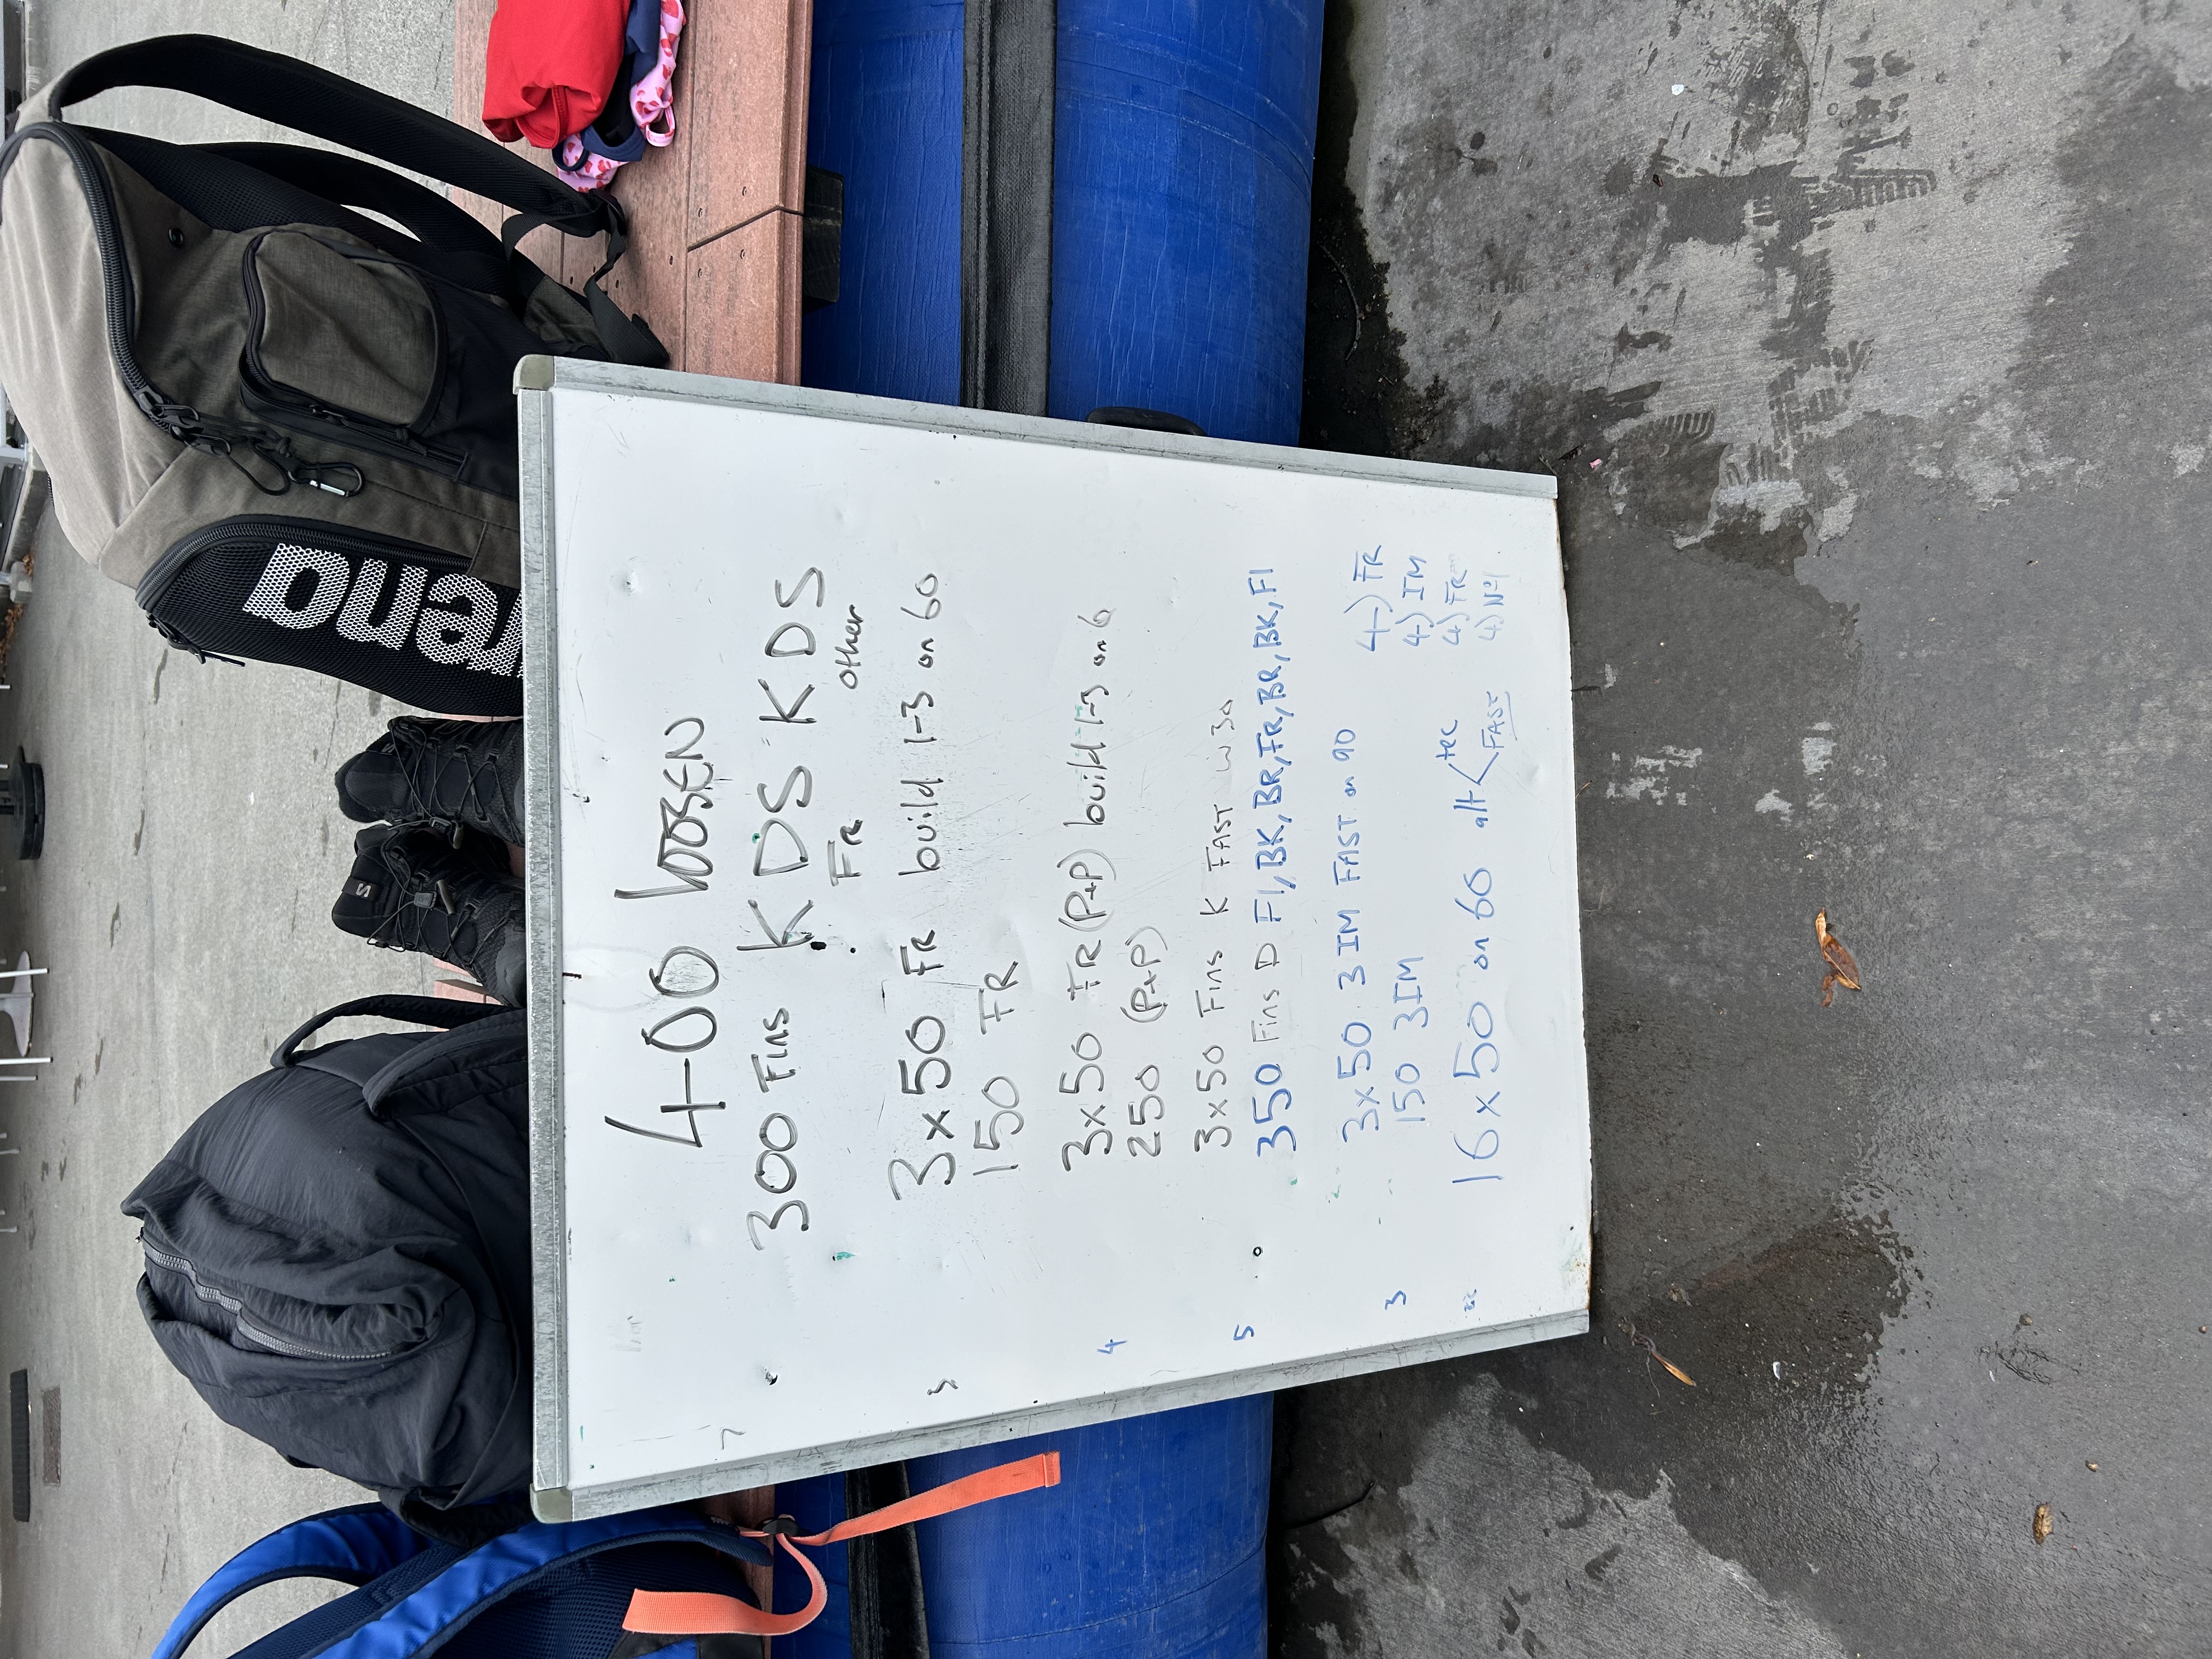 arena
400 loosen
7
300 Fins K DS K DS
Fr other
3x50 FR build 1-3 on 60
3
150 FR
3x50 FR (P+P) build 1-3 on 6
4
250 (P+P)
3x50 Fins K FAST w 30
5
350 Fins D Fl, BK, BR, FR, BR, BK, Fl
3x50 3 IM FAST on 90
4) FR
3
150 3IM
4) IM
16x50 on 60 alt tec
FAST
4) FR
4) No1